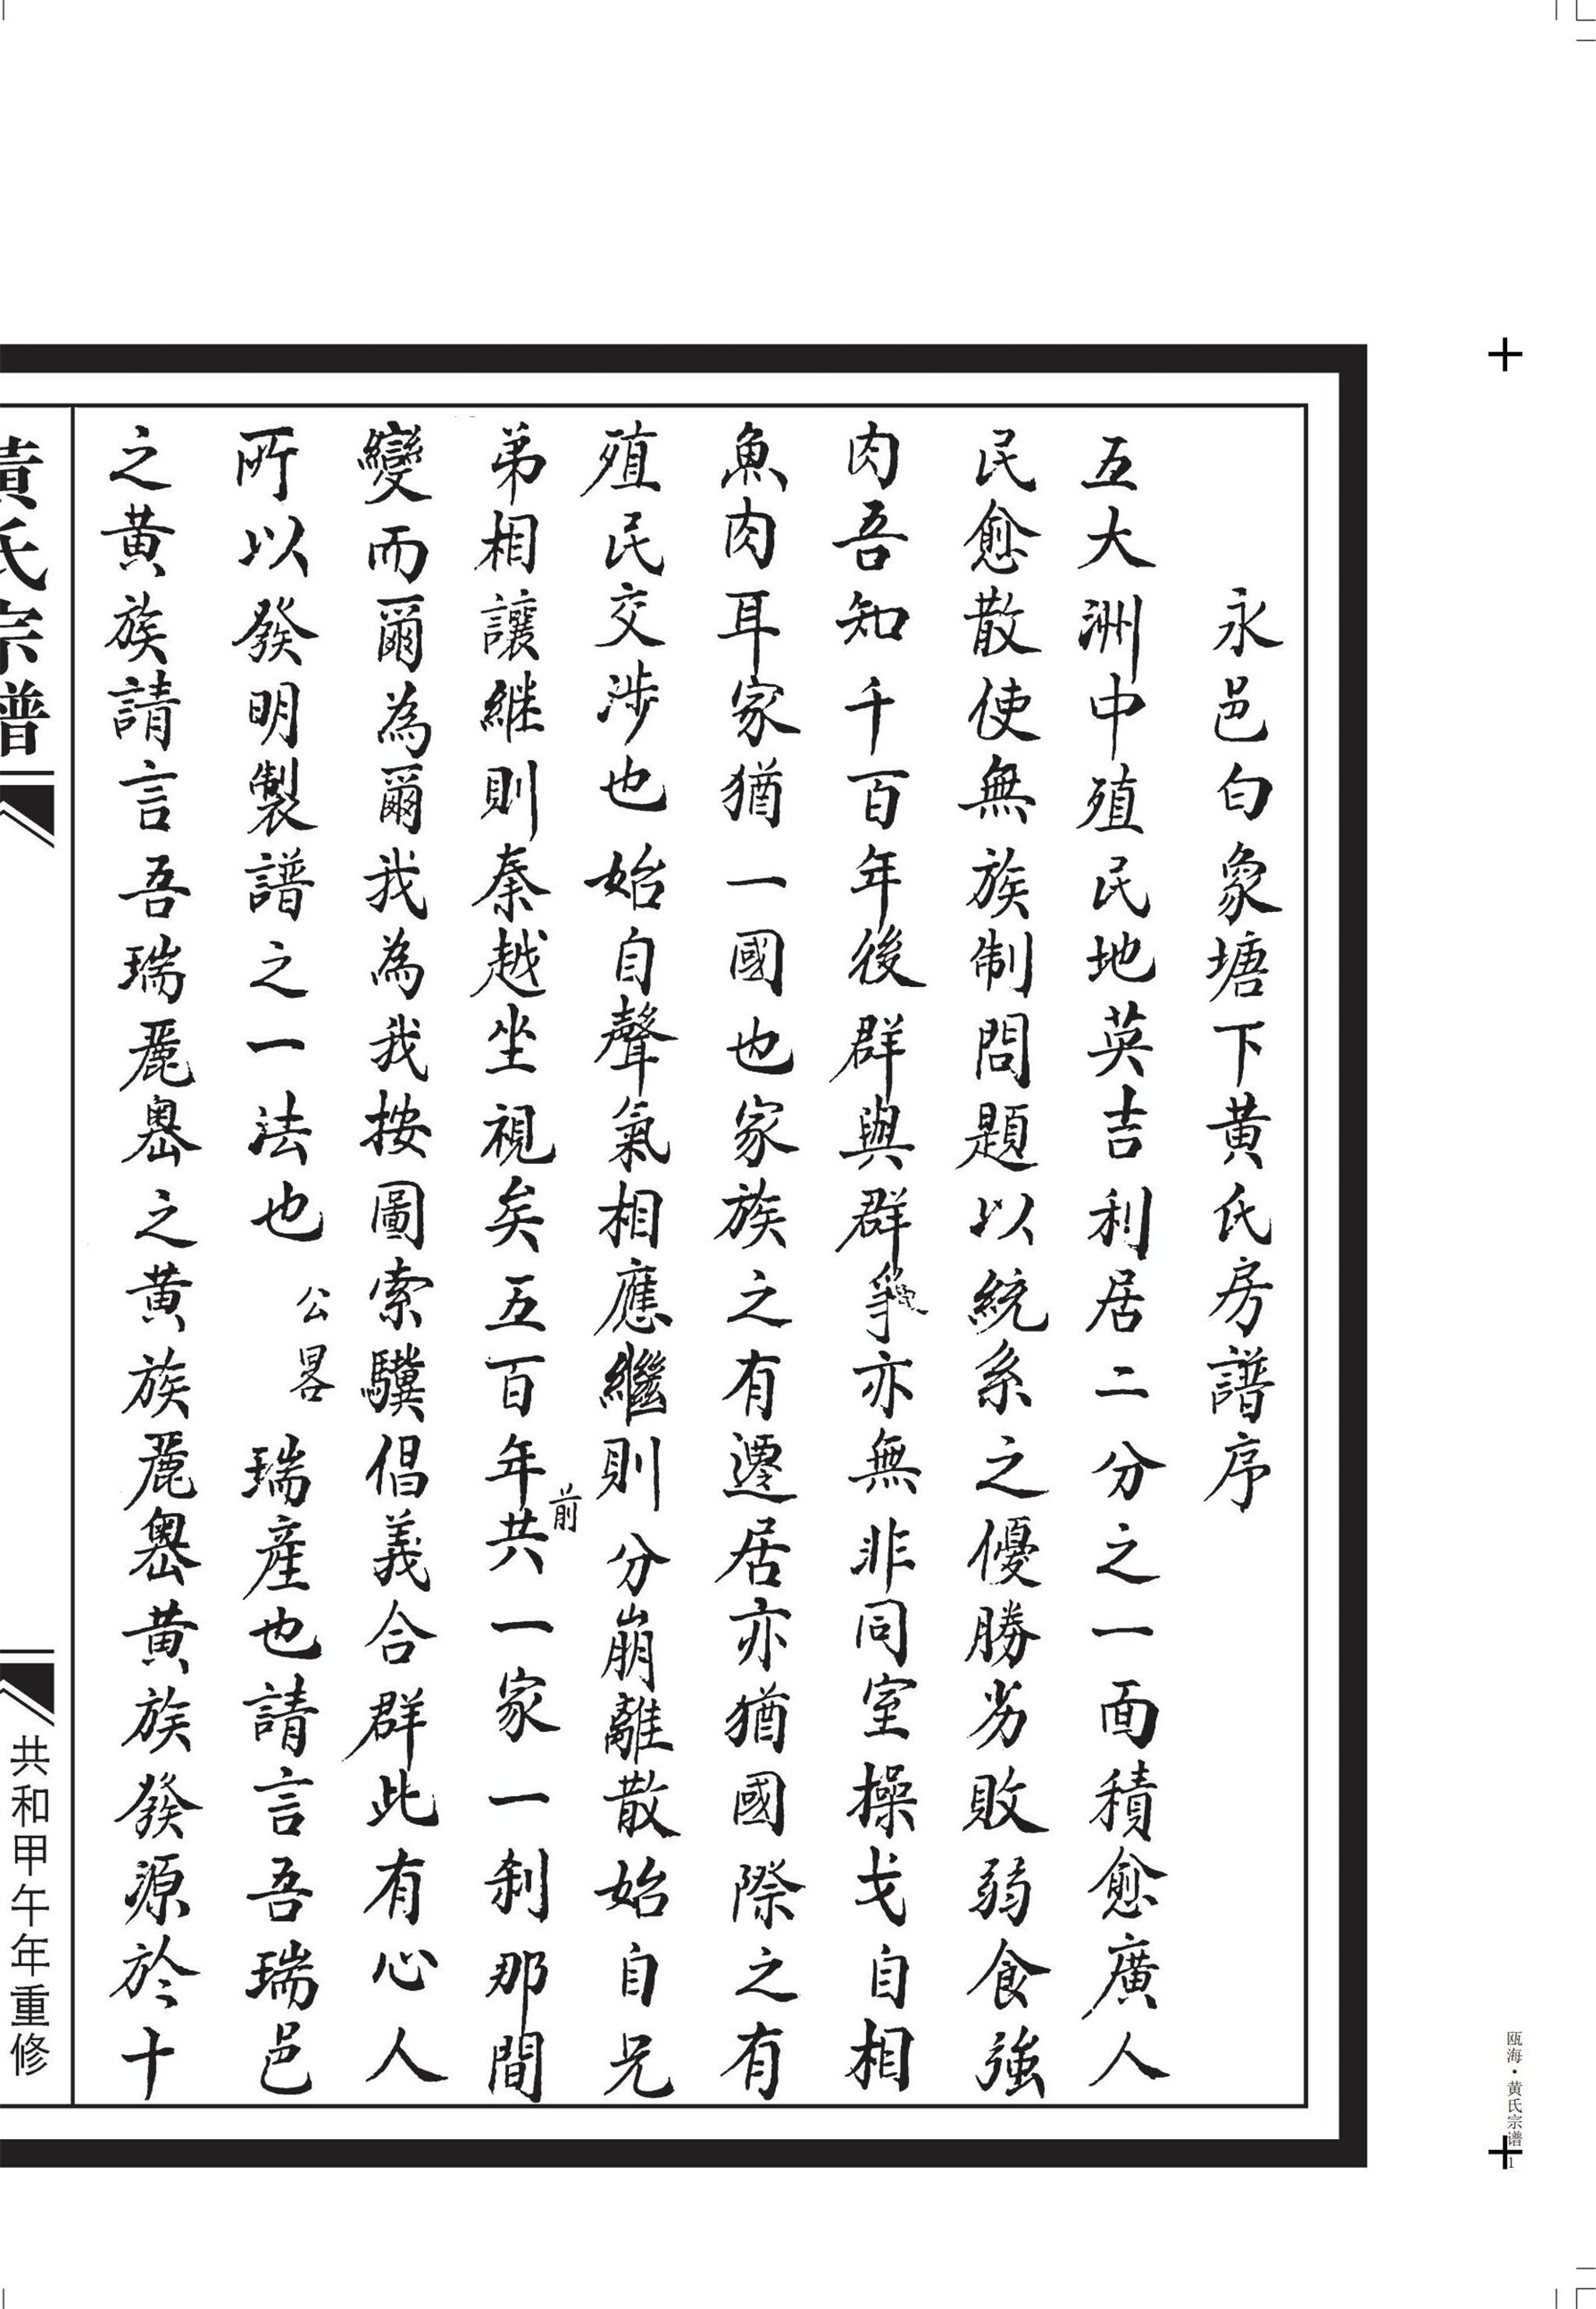 永邑白象塘下黄氏房譜序
五大洲中殖民地英吉利居二分之一面積愈廣人
民愈散使無族制問題以統系之優勝劣敗弱食強
肉吾知千百年後群與群爭亦無非同室操戈自相
魚肉耳家猶一國也家族之有遷居亦猶國際之有
殖民交涉也始自聲氣相應繼則分崩離散始自兄
弟相讓継則秦越坐視矣五百年前共一家一刹那間
變而爾為爾我為我按圖索驥倡義合群此有心人
所以發明製譜之一法也公畧瑞產也請言吾瑞邑
之黄族請言吾瑞麗嶴之黄族麗嶴黄族發源於十
黄氏宗譜
共和甲午年重修
瓯海·黄氏宗谱
1